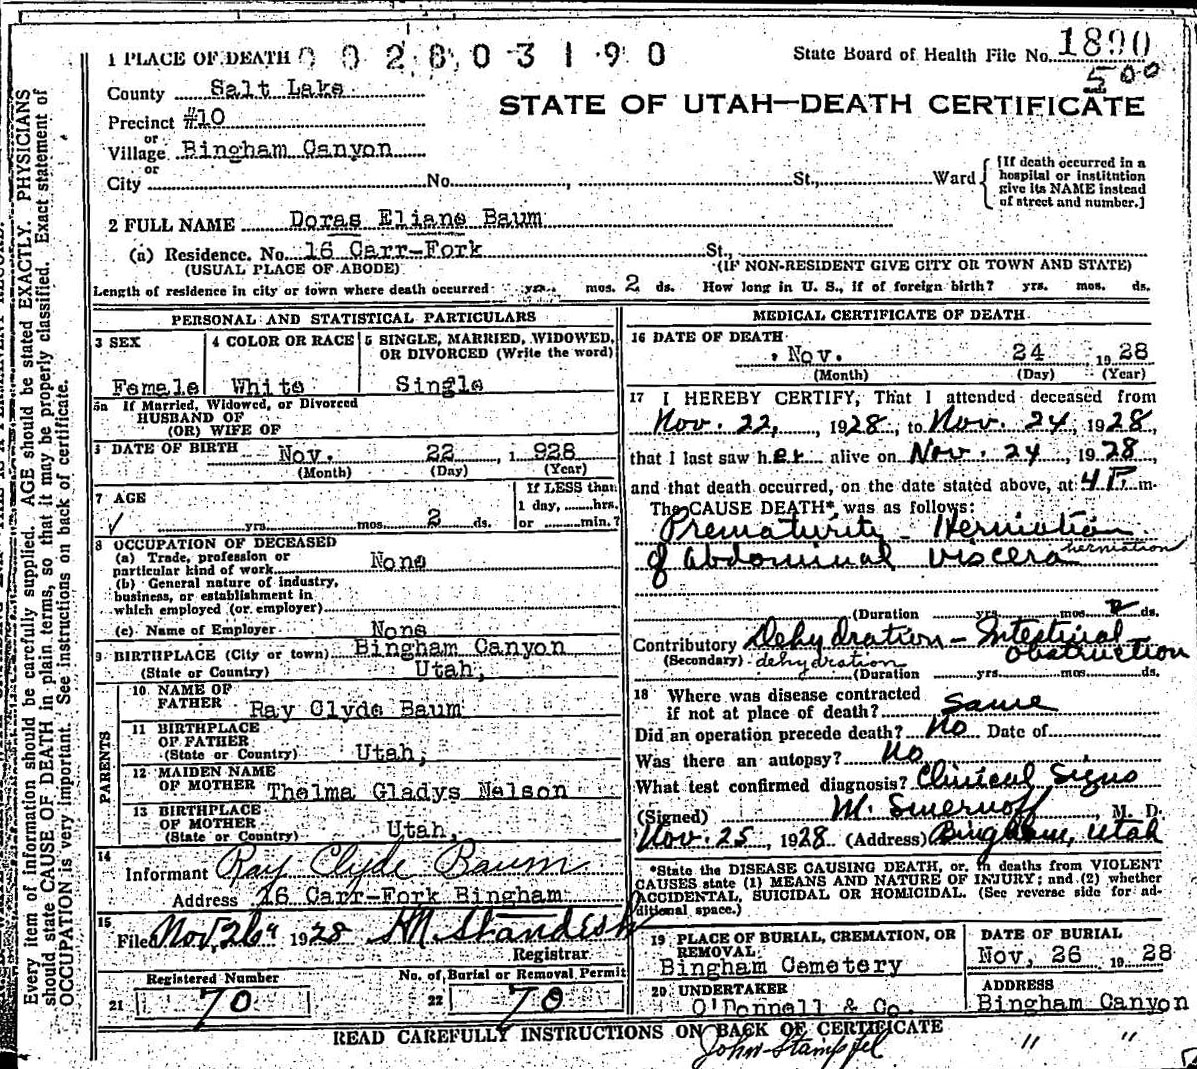 1 PLACE OF DEATH 0 0 2 8 0 3 1 9 0
State Board of Health File No. 1890
500
County Salt Lake
STATE OF UTAH—DEATH CERTIFICATE
Precinct #10
or
Village Bingham Canyon
or
City No. , St., Ward
[If death occurred in a
hospital or institution
give its NAME instead
of street and number.]
2 FULL NAME Doras Eliane Baum
(a) Residence. No. 16 Carr-Fork St.,
(USUAL PLACE OF ABODE) (IF NON-RESIDENT GIVE CITY OR TOWN AND STATE)
Length of residence in city or town where death occurred yrs. mos. 2 ds. How long in U. S., if of foreign birth? yrs. mos. ds.
PERSONAL AND STATISTICAL PARTICULARS
3 SEX
Female
4 COLOR OR RACE
White
5 SINGLE, MARRIED, WIDOWED,
OR DIVORCED (Write the word)
Single
5a If Married, Widowed, or Divorced
HUSBAND OF
(OR) WIFE OF
DATE OF BIRTH Nov. 22 , 1 928
(Month) (Day) (Year)
7 AGE
yrs. mos. 2 ds.
If LESS than
1 day, hrs.
or min.?
8 OCCUPATION OF DECEASED
(a) Trade, profession or
particular kind of work None
(b) General nature of industry,
business, or establishment in
which employed (or employer)
(c) Name of Employer None
9 BIRTHPLACE (City or town) Bingham Canyon
(State or Country) Utah,
PARENTS
10 NAME OF
FATHER Ray Clyde Baum
11 BIRTHPLACE
OF FATHER
(State or Country) Utah,
12 MAIDEN NAME
OF MOTHER Thelma Gladys Nelson
13 BIRTHPLACE
OF MOTHER
(State or Country) Utah,
14
Informant Ray Clyde Baum
Address 16 Carr-Fork Bingham
15
Filed Nov. 26 1928 HM Standish
Registrar
Registered Number
21 70
No. of Burial or Removal Permit
22 70
MEDICAL CERTIFICATE OF DEATH
16 DATE OF DEATH
Nov. 24 1928
(Month) (Day) (Year)
17 I HEREBY CERTIFY, That I attended deceased from
Nov. 22, , 1928, to Nov. 24, 1928,
that I last saw her alive on Nov. 24, 1928
and that death occurred, on the date stated above, at 4 P. m.
The CAUSE DEATH* was as follows:
Prematurity - Herniation
of abdominal viscera herniation
(Duration yrs. mos. 2 ds.
Contributory Dehydration - Intestinal
obstruction
(Secondary) dehydration
(Duration yrs. mos. ds.
18 Where was disease contracted
if not at place of death? Same
Did an operation precede death? No Date of
Was there an autopsy? No
What test confirmed diagnosis? Clinical Signs
(Signed) M. Smernoff, M. D.
Nov. 25, 1928 (Address) Bingham, Utah
*State the DISEASE CAUSING DEATH, or, in deaths from VIOLENT
CAUSES state (1) MEANS AND NATURE OF INJURY; and (2) whether
ACCIDENTAL, SUICIDAL OR HOMICIDAL. (See reverse side for ad-
ditional space.)
19 PLACE OF BURIAL, CREMATION, OR
REMOVAL
Bingham Cemetery
DATE OF BURIAL
Nov, 26 1928
20 UNDERTAKER
O'Donnell & Co.
ADDRESS
Bingham Canyon
READ CAREFULLY INSTRUCTIONS ON BACK OF CERTIFICATE
John Stampfel " "
Every item of information should be carefully supplied. AGE should be stated EXACTLY. PHYSICIANS
should state CAUSE OF DEATH in plain terms, so that it may be properly classified. Exact statement of
OCCUPATION is very important. See instructions on back of certificate.